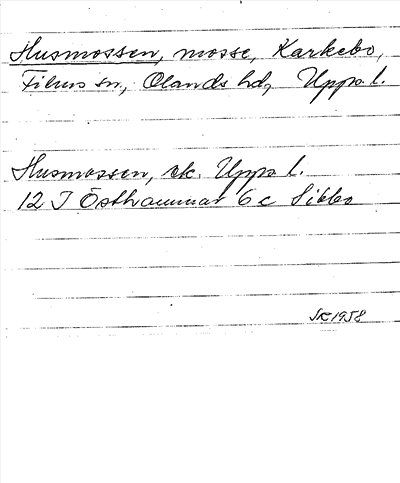 Husmossen, mosse, Karkebo,
Films sn, Olands hd, Upps. l.
Husmossen, ek. Upps l.
12 I Östhammar 6 c Sibbo
SK 1958